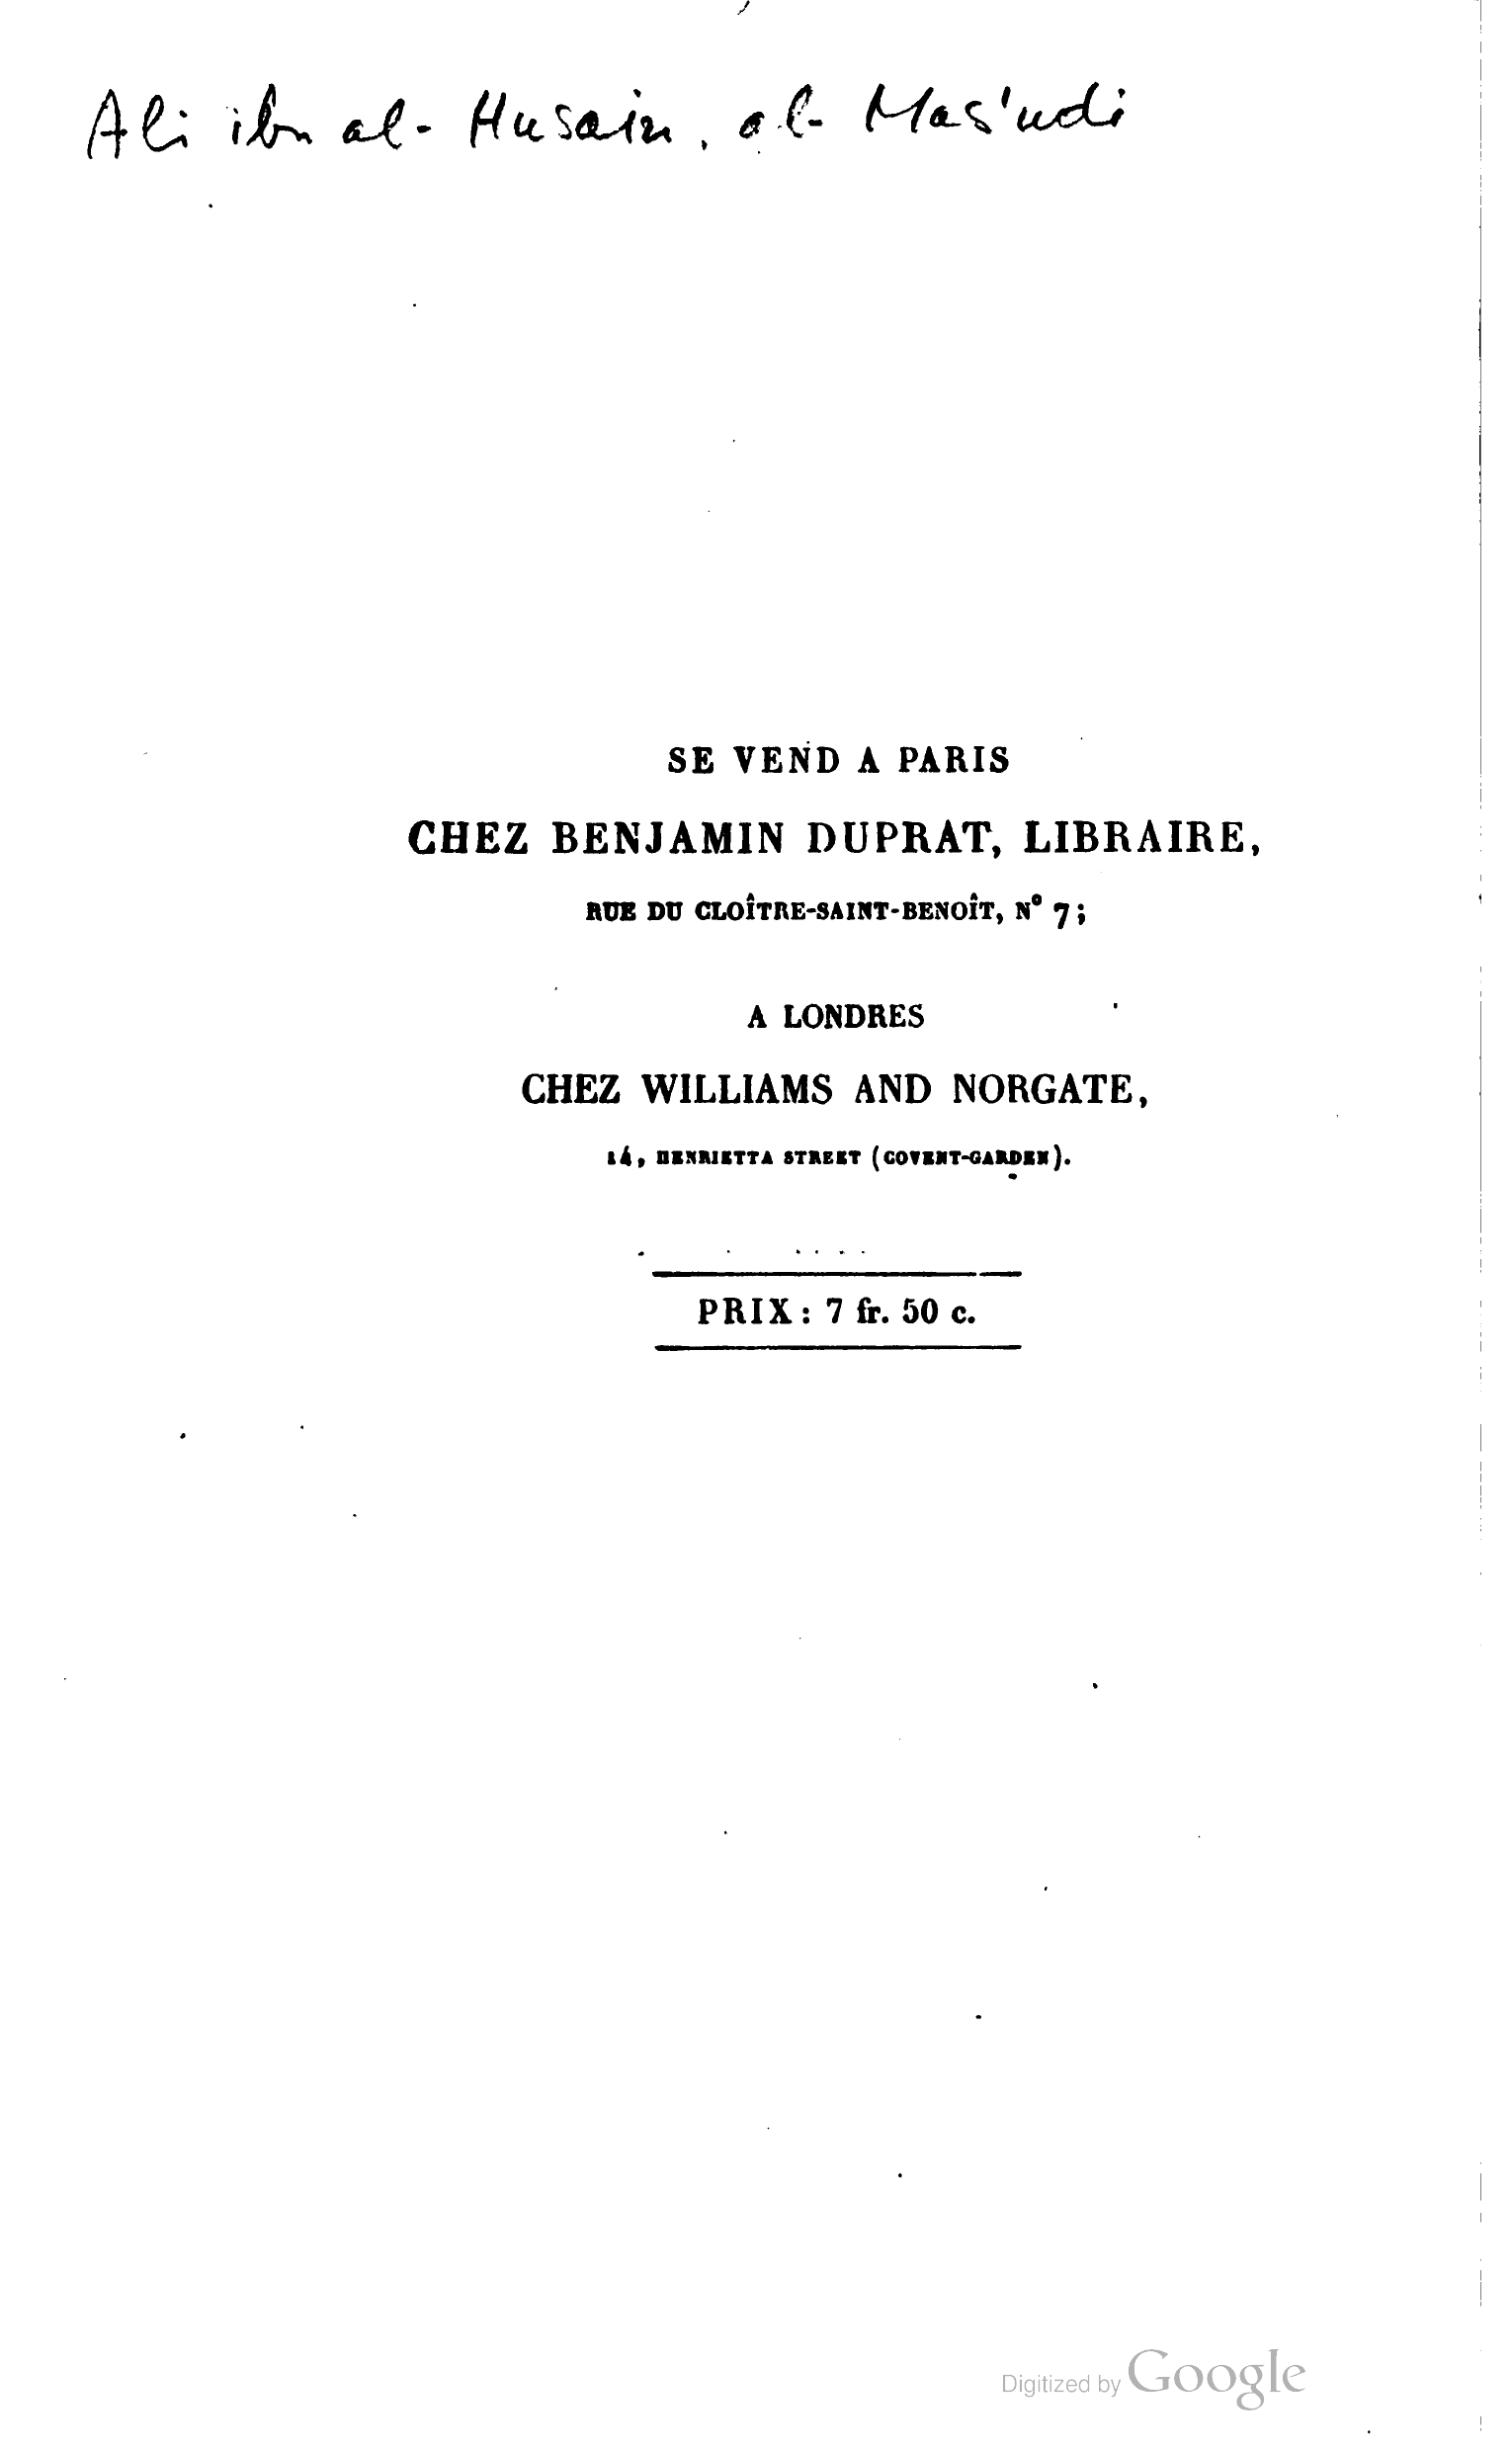 Ali ibn al-Husain, al-Mas'udi
SE VEND A PARIS
CHEZ BENJAMIN DUPRAT, LIBRAIRE,
RUE DU CLOÎTRE-SAINT-BENOÎT, N° 7;
A LONDRES
CHEZ WILLIAMS AND NORGATE,
14, HENRIETTA STREET (COVENT-GARDEN).
PRIX: 7 fr. 50 c.
Digitized by Google